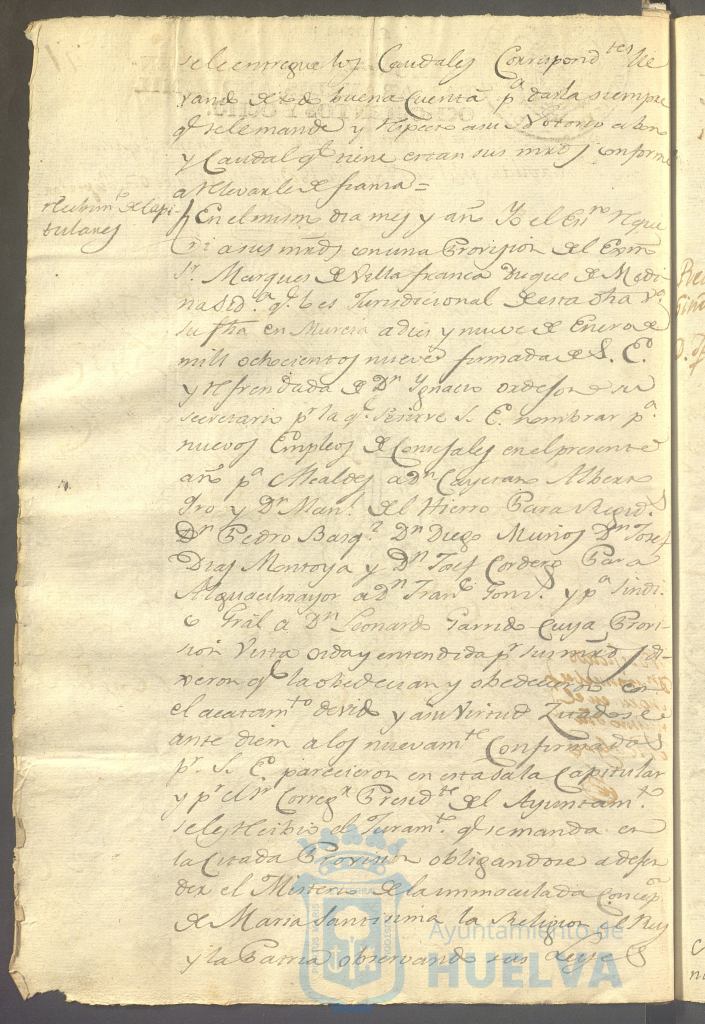 se le entregue los Caudales Correspond.tes lle
vando de todo buena Cuenta p.a darla siempre
q.e se le mande y respecto asu Notorio abono
y Caudal q.e tiene estan sus mrds conforme
a relevarle de fianza =
Recivim.to de Capi-
tulares
En el mismo dia mes y año Yo el Es.no reque
ri a sus mrds con una Provision del Exmo
S.r Marques de Villafranca Duque de Medi
na Sid.a q.e lo es Jurisdicional de esta dha v.a
su fha en Murcia a dies y nueve de Enero de
mill ochocientos nueve firmada de S. E.
y refrendada de D.n Ygnacio de su
secretario p.r la q.e se sirve S. E. nombrar p.a
nuevos Empleos de Consejales en el presente
año p.a Alcaldes a D.n Cayetano Alberto
y D.n Man.l del Hierro Para Regid.s
D.n Pedro Basq.z D.n Diego Muños D.n Josef
Dias Montoya y D.n Josef Cordero Para
Alguacil mayor a D.n Fran.co Gonz.s y p.a Sindi
co Gräl a D.n Leonardo Garrido Cuya Provi
sion Vista oida y entendida p.r sus mrds di
xeron q.e la obedecian y obedecieron con
el acatam.to devido y a su Virtud
ante diem a los nuevam.te Confirmados
p.r S. E. parecieron en esta Sala Capitular
y p.r el S.r Correg.r Presid.te del Ayuntam.to
se les recibio el Juram.to q.e se manda en
la Citada Provision obligandose a defen
der el Misterio de la inmaculada Concep.n
de Maria Santisima la Religion el Rey
y la Patria observando sus Leyes
Ayuntamiento de
HUELVA